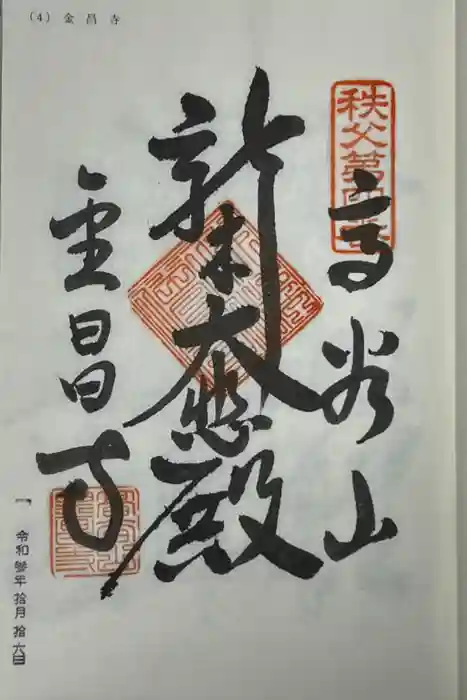 (4) 金昌寺
秩父第四番
高谷山
新木大悲殿
金昌寺
一 令和参年拾月拾六日